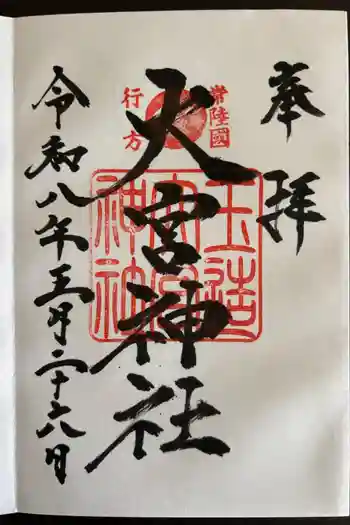 奉拝
常陸國
行方
大宮神社
玉造
大宮
神社
令和八年五月二十八日